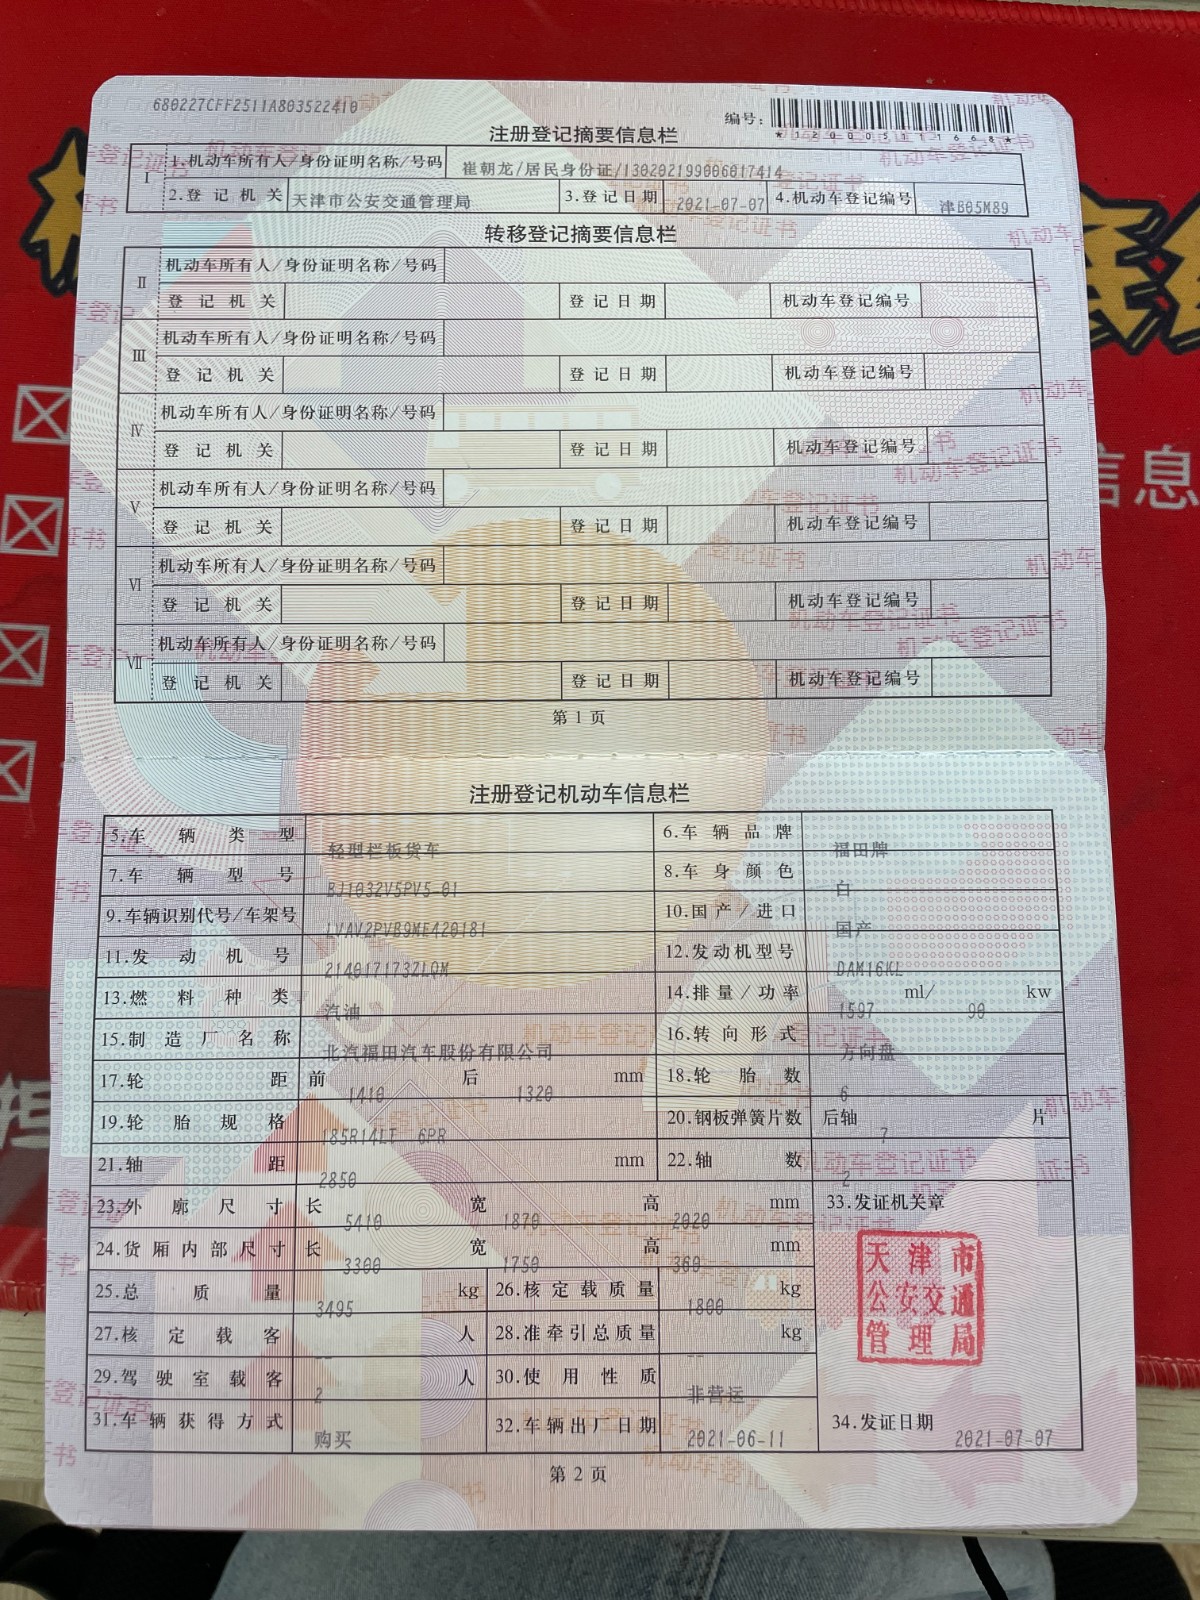 680227CFF2511A803522410
编号：
*120005111668*
注册登记摘要信息栏
I 1.机动车所有人/身份证明名称/号码 崔朝龙/居民身份证/130202199006017414
2.登记机关 天津市公安交通管理局 3.登记日期 2021-07-07 4.机动车登记编号 津B05M89
转移登记摘要信息栏
II 机动车所有人/身份证明名称/号码
登记机关 登记日期 机动车登记编号
III 机动车所有人/身份证明名称/号码
登记机关 登记日期 机动车登记编号
IV 机动车所有人/身份证明名称/号码
登记机关 登记日期 机动车登记编号
V 机动车所有人/身份证明名称/号码
登记机关 登记日期 机动车登记编号
VI 机动车所有人/身份证明名称/号码
登记机关 登记日期 机动车登记编号
VII 机动车所有人/身份证明名称/号码
登记机关 登记日期 机动车登记编号
第 1 页
注册登记机动车信息栏
5.车辆类型 轻型栏板货车 6.车辆品牌 福田牌
7.车辆型号 BJ1032V5PV5-01 8.车身颜色 白
9.车辆识别代号/车架号 LVAV2PVB9ME420181 10.国产/进口 国产
11.发动机号 214017173ZLQM 12.发动机型号 DAM16KL
13.燃料种类 汽油 14.排量/功率 1597 ml/ 90 kw
15.制造厂名称 北汽福田汽车股份有限公司 16.转向形式 方向盘
17.轮距 前 1410 后 1320 mm 18.轮胎数 6
19.轮胎规格 185R14LT 6PR 20.钢板弹簧片数 后轴 7 片
21.轴距 2850 mm 22.轴数 2
23.外廓尺寸 长 5410 宽 1870 高 2020 mm 33.发证机关章
24.货厢内部尺寸 长 3300 宽 1750 高 360 mm
25.总质量 3495 kg 26.核定载质量 1800 kg
27.核定载客 -- 人 28.准牵引总质量 -- kg
29.驾驶室载客 2 人 30.使用性质 非营运
31.车辆获得方式 购买 32.车辆出厂日期 2021-06-11 34.发证日期 2021-07-07
天津市
公安交通
管理局
第 2 页
信息